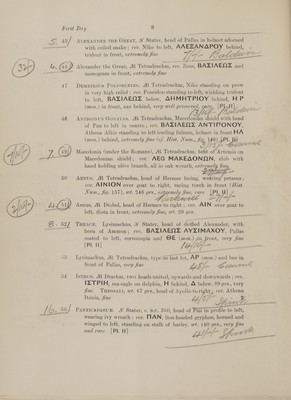 First Day 6
5. 45/ ALEXANDER THE GREAT, N Stater, head of Pallas in helmet adorned
with coiled snake; rev. Nike to left, ΑΛΕΞΑΝΔΡΟΥ behind,
trident in front, extremely fine Baldwin
4. Alexander the Great, Æ Tetradrachm, rev. Zeus, ΒΑΣΙΛΕΩΣ and
monogram in front, extremely fine
47 DEMETRIUS POLIORCETES, Æ Tetradrachm, Nike standing on prow
in very high relief; rev. Poseidon standing to left, wielding trident
to left, ΒΑΣΙΛΕΩΣ below, ΔΗΜΗΤΡΙΟΥ behind, ΗΡ
(mon.) in front, star behind, very well preserved, rare [Pl. II]
48 ANTIGONUS GONATAS, Æ Tetradrachm, Macedonian shield with head
of Pan to left in centre; rev. ΒΑΣΙΛΕΩΣ ΑΝΤΙΓΟΝΟΥ,
Athena Alkis standing to left hurling fulmen, helmet in front ΗΛ
(mon.) behind, extremely fine (cf. Hist. Num., fig. 146) [Pl. II]
7. 49 Macedonia (under the Romans), Æ Tetradrachm, bust of Artemis on
Macedonian shield; rev. ΛΕΓ ΜΑΚΕΔΟΝΩΝ, club with
hand holding olive branch, all in oak wreath, extremely fine
50 AENUS, Æ Tetradrachm, head of Hermes facing, wearing petasus;
rev. ΑΙΝΙΟΝ over goat to right, racing torch in front (Hist
Num., fig. 157), wt. 246 grs., extremely fine, rare [Pl. II]
4. 51 Aenus, Æ Diobol, head of Hermes to right; rev. ΑΙΝ over goat to
left, diota in front, extremely fine, wt. 20 grs.
8. 52/ THRACE. Lysimachus, N Stater, head of deified Alexander, with
horn of Ammon; rev. ΒΑΣΙΛΕΩΣ ΛΥΣΙΜΑΧΟΥ, Pallas
seated to left, monogram and ΘΕ (mon.) in front, very fine
[Pl. II]
53 Lysimachus, Æ Tetradrachm, type to last lot, ΑΡ (mon.) and bee in
front of Pallas, very fine
54 ISTRUS. Æ Drachm, two heads united, upwards and downwards; rev.
ΙΣΤΡΙΗ, sea-eagle on dolphin, Η behind, Δ below, 89 grs.,
fine. THESSALY, wt. 67 grs., head of Apollo to right; rev. Athena
Itonia, fine Spink
16. 55/ PANTICAPAEUM. N Stater, c. B.C. 350, head of Pan in profile to left,
wearing ivy wreath; rev. ΠΑΝ, lion-headed gryphon, horned and
winged to left, standing on stalk of barley, wt. 140 grs., very fine
and rare [Pl. II] Spink